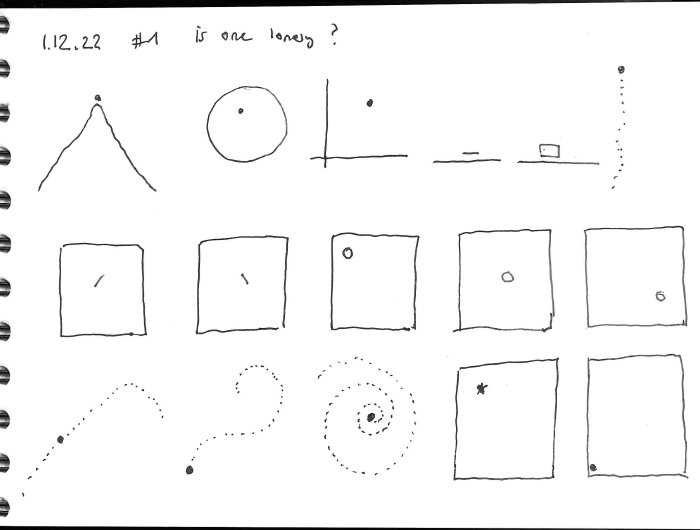 1.12.22 #1 is one lonely ?